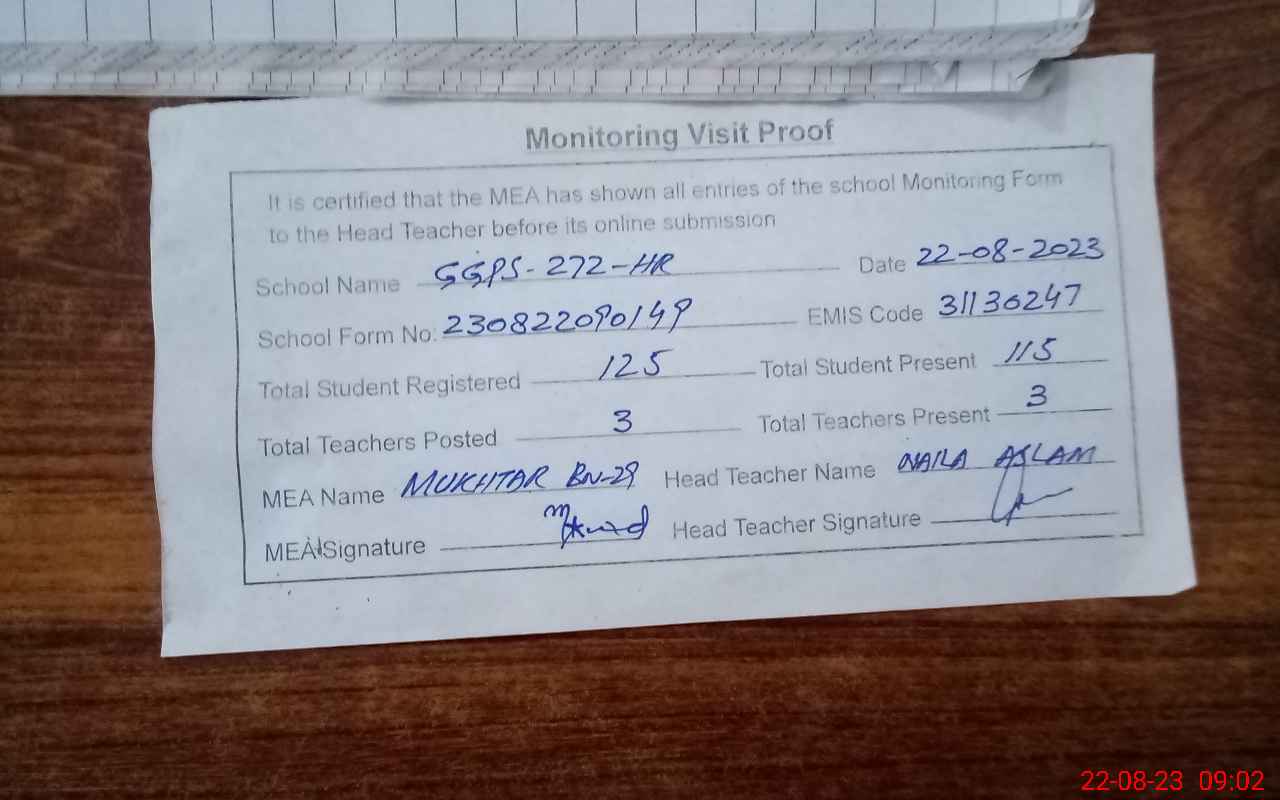 Monitoring Visit Proof
It is certified that the MEA has shown all entries of the school Monitoring Form
to the Head Teacher before its online submission
School Name GGPS-272-HR Date 22-08-2023
School Form No: 230822090149 EMIS Code 31130247
Total Student Registered 125 Total Student Present 115
Total Teachers Posted 3 Total Teachers Present 3
MEA Name MUKHTAR BN-29 Head Teacher Name NAILA ASLAM
MEA Signature Head Teacher Signature
22-08-23 09:02